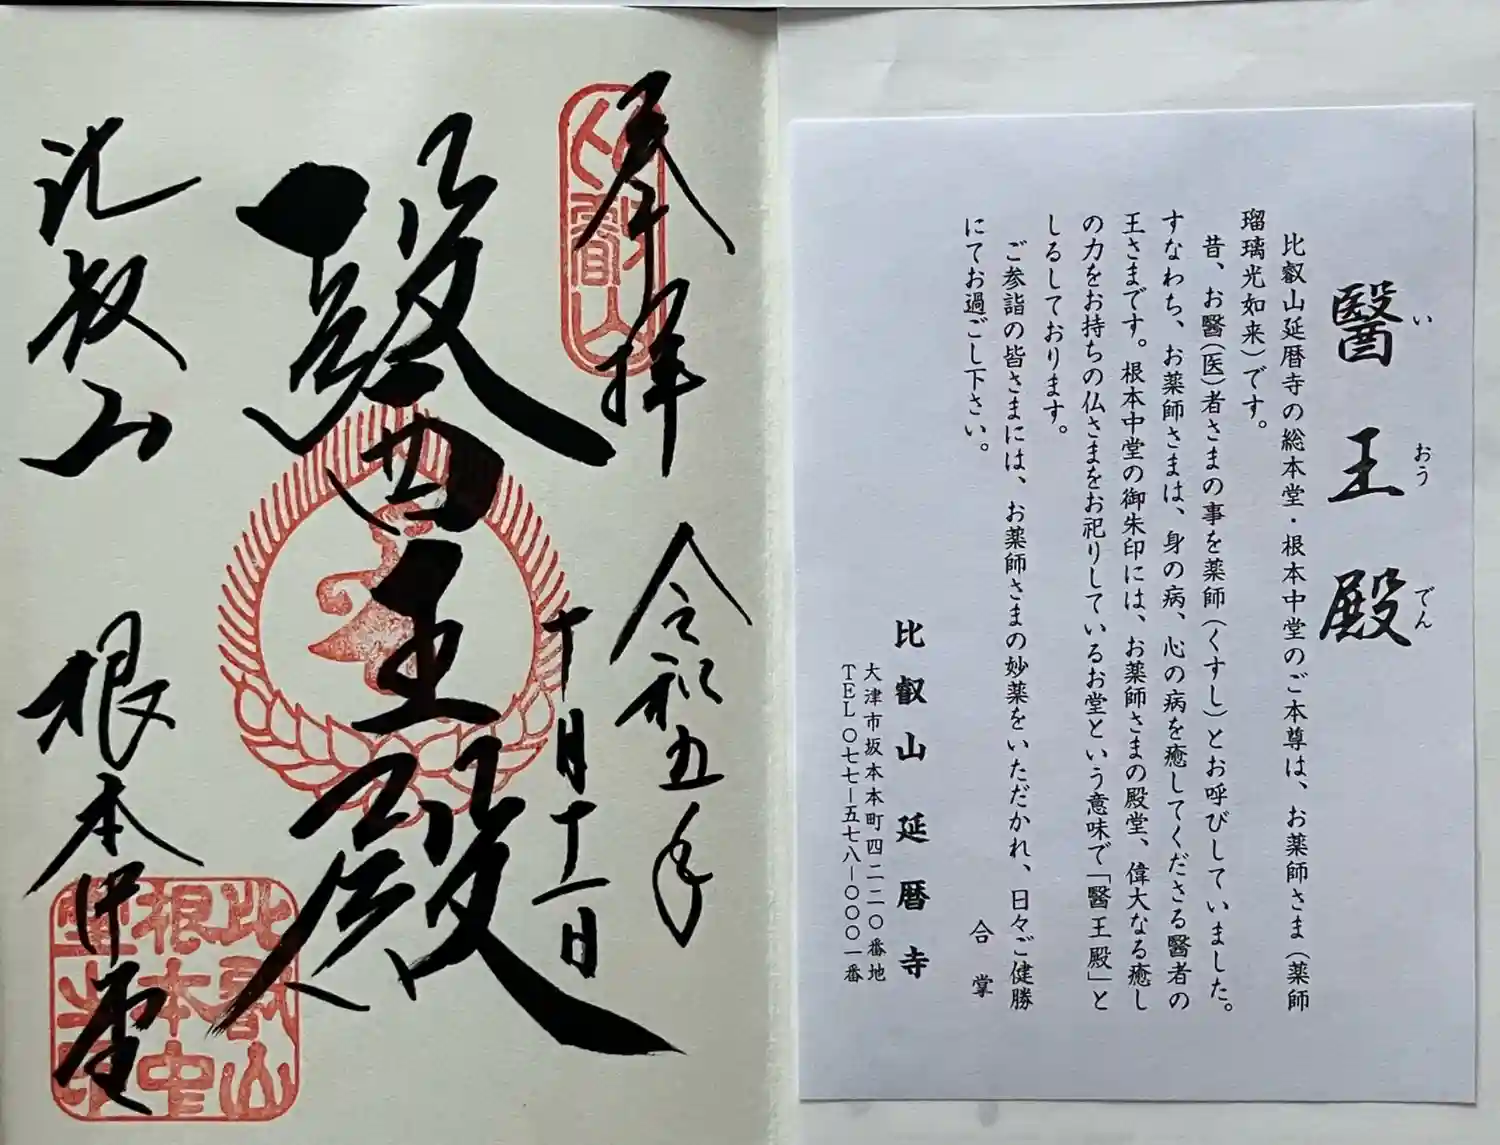 醫王殿
いおうでん
比叡山延暦寺の総本堂・根本中堂のご本尊は、お薬師さま（薬師
瑠璃光如来）です。
昔、お醫（医）者さまの事を薬師（くすし）とお呼びしていました。
すなわち、お薬師さまは、身の病、心の病を癒してくださる醫者の
王さまです。根本中堂の御朱印には、お薬師さまの殿堂、偉大なる癒し
の力をお持ちの仏さまをお祀りしているお堂という意味で「醫王殿」と
しるしております。
ご参詣の皆さまには、お薬師さまの妙薬をいただかれ、日々ご健勝
にてお過ごし下さい。
合掌
比叡山延暦寺
大津市坂本本町四二二〇番地
TEL〇七七－五七八－〇〇〇一番
奉拝
比叡山
令和五年
十月十一日
醫王殿
比叡山 根本中堂
比叡山
根本中
堂之印